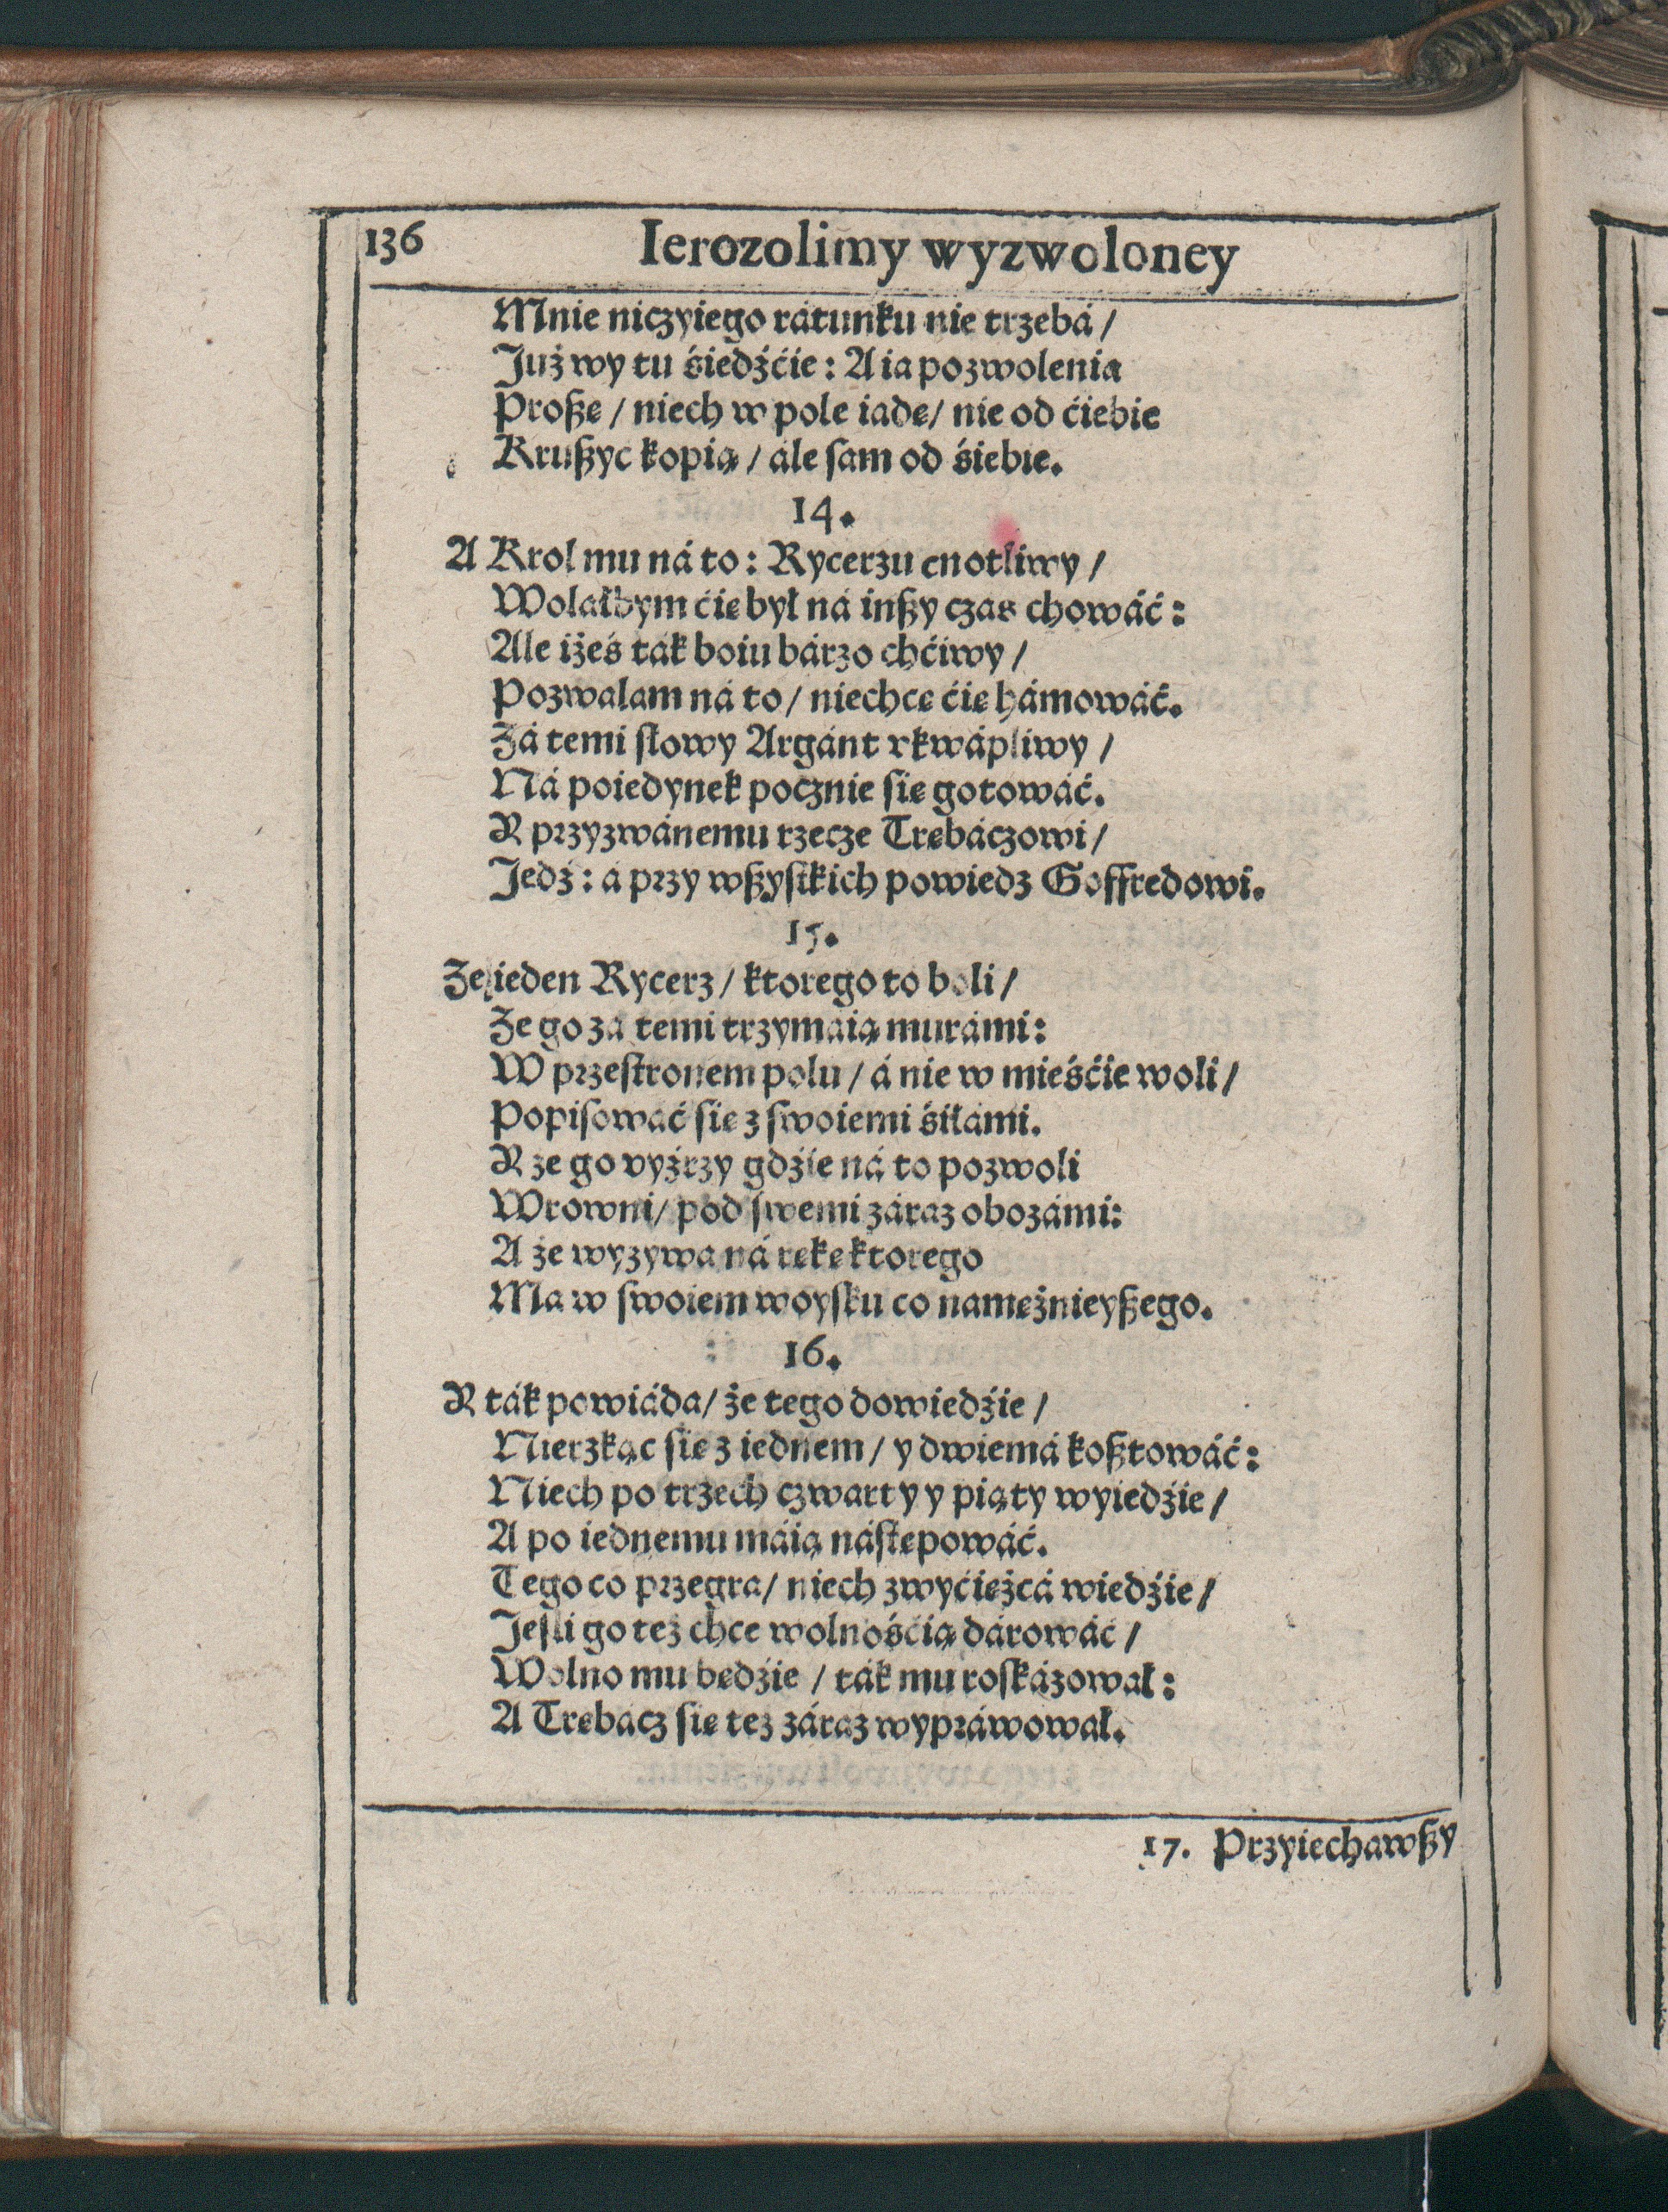 136
Ierozolimy wyzwoloney
Mnie niczyiego rátunku nie trzebá /
Już wy tu śiedźćie: A ia pozwolenia
Proßę / niech w pole iadę / nie od ćiebie
Krußyc kopią / ále ſam od śiebie.
14.
A Krol mu ná to: Rycerzu cnotliwy /
Wolałbym ćię był ná inßy czas chowáć:
Ale iżeś ták boiu bárzo chćiwy /
Pozwalam ná to / niechcę ćię hámowáć.
Zá temi słowy Argánt rkwápliwy /
Ná poiedynek pocznie ſię gotowáć.
Y przyzwánemu rzecze Trębáczowi /
Jedź: á przy wßyſtkich powiedz Goffredowi.
15.
Ze ieden Rycerz / ktorego to boli /
Ze go zá temi trzymáią murámi:
W przeſtronem polu / á nie w mieśćie woli /
Popiſowáć ſię z ſwoiemi śiłámi.
Y że go vyźrzy gdźie ná to pozwoli
Wrowni / pod ſwemi záraz obozámi:
A że wyzywa ná rękę ktorego
Ma w ſwoiem woyſku co namężnieyßego.
16.
Y ták powiáda / że tego dowiedźie /
Nierzkąc ſię z iednem / y dwiemá koßtowáć:
Niech po trzech czwarty y piąty wyiedźie /
A po iednemu máią náſtępowáć.
Tego co przegra / niech zwyćiężcá wiedźie /
Jeſli go też chce wolnośćią dárowáć /
Wolno mu będźie / ták mu roſkázował:
A Trębácz ſię też záraz wypráwował.
17. Przyiechawßy